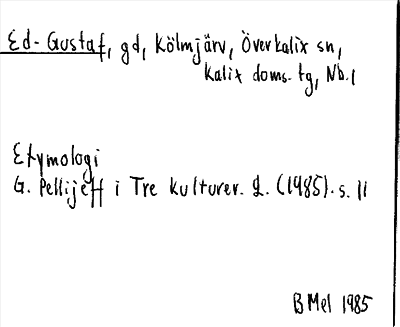 Ed-Gustaf, gd, Kölmjärv, Överkalix sn,
Kalix doms. tg, Nb.
Etymologi
G. Pellijeff i Tre kulturer. 2. (1985). s. 11
B Mel 1985